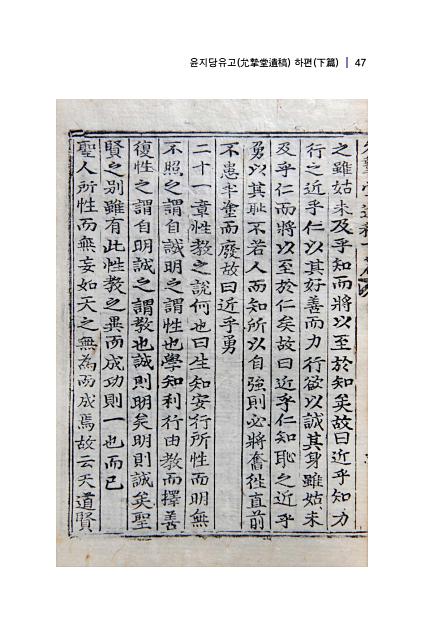 윤지당유고(允摯堂遺稿) 하편(下篇) | 47
之雖姑未及乎知而將以至於知矣故曰近乎知力
行之近乎仁以其好善而力行欲以誠其身雖姑未
及乎仁而將以至於仁矣故曰近乎仁知耻之近乎
勇以其耻不若人而知所以自強則必將奮徃直前
不患半塗而廢故曰近乎勇
二十一章性教之說何也曰生知安行所性而明無
不照之謂自誠明之謂性也學知利行由教而擇善
復性之謂自明誠之謂教也誠則明矣明則誠矣聖
賢之別雖有此性教之異而成功則一也而已
聖人所性而無妄如天之無為而成焉故云天道賢